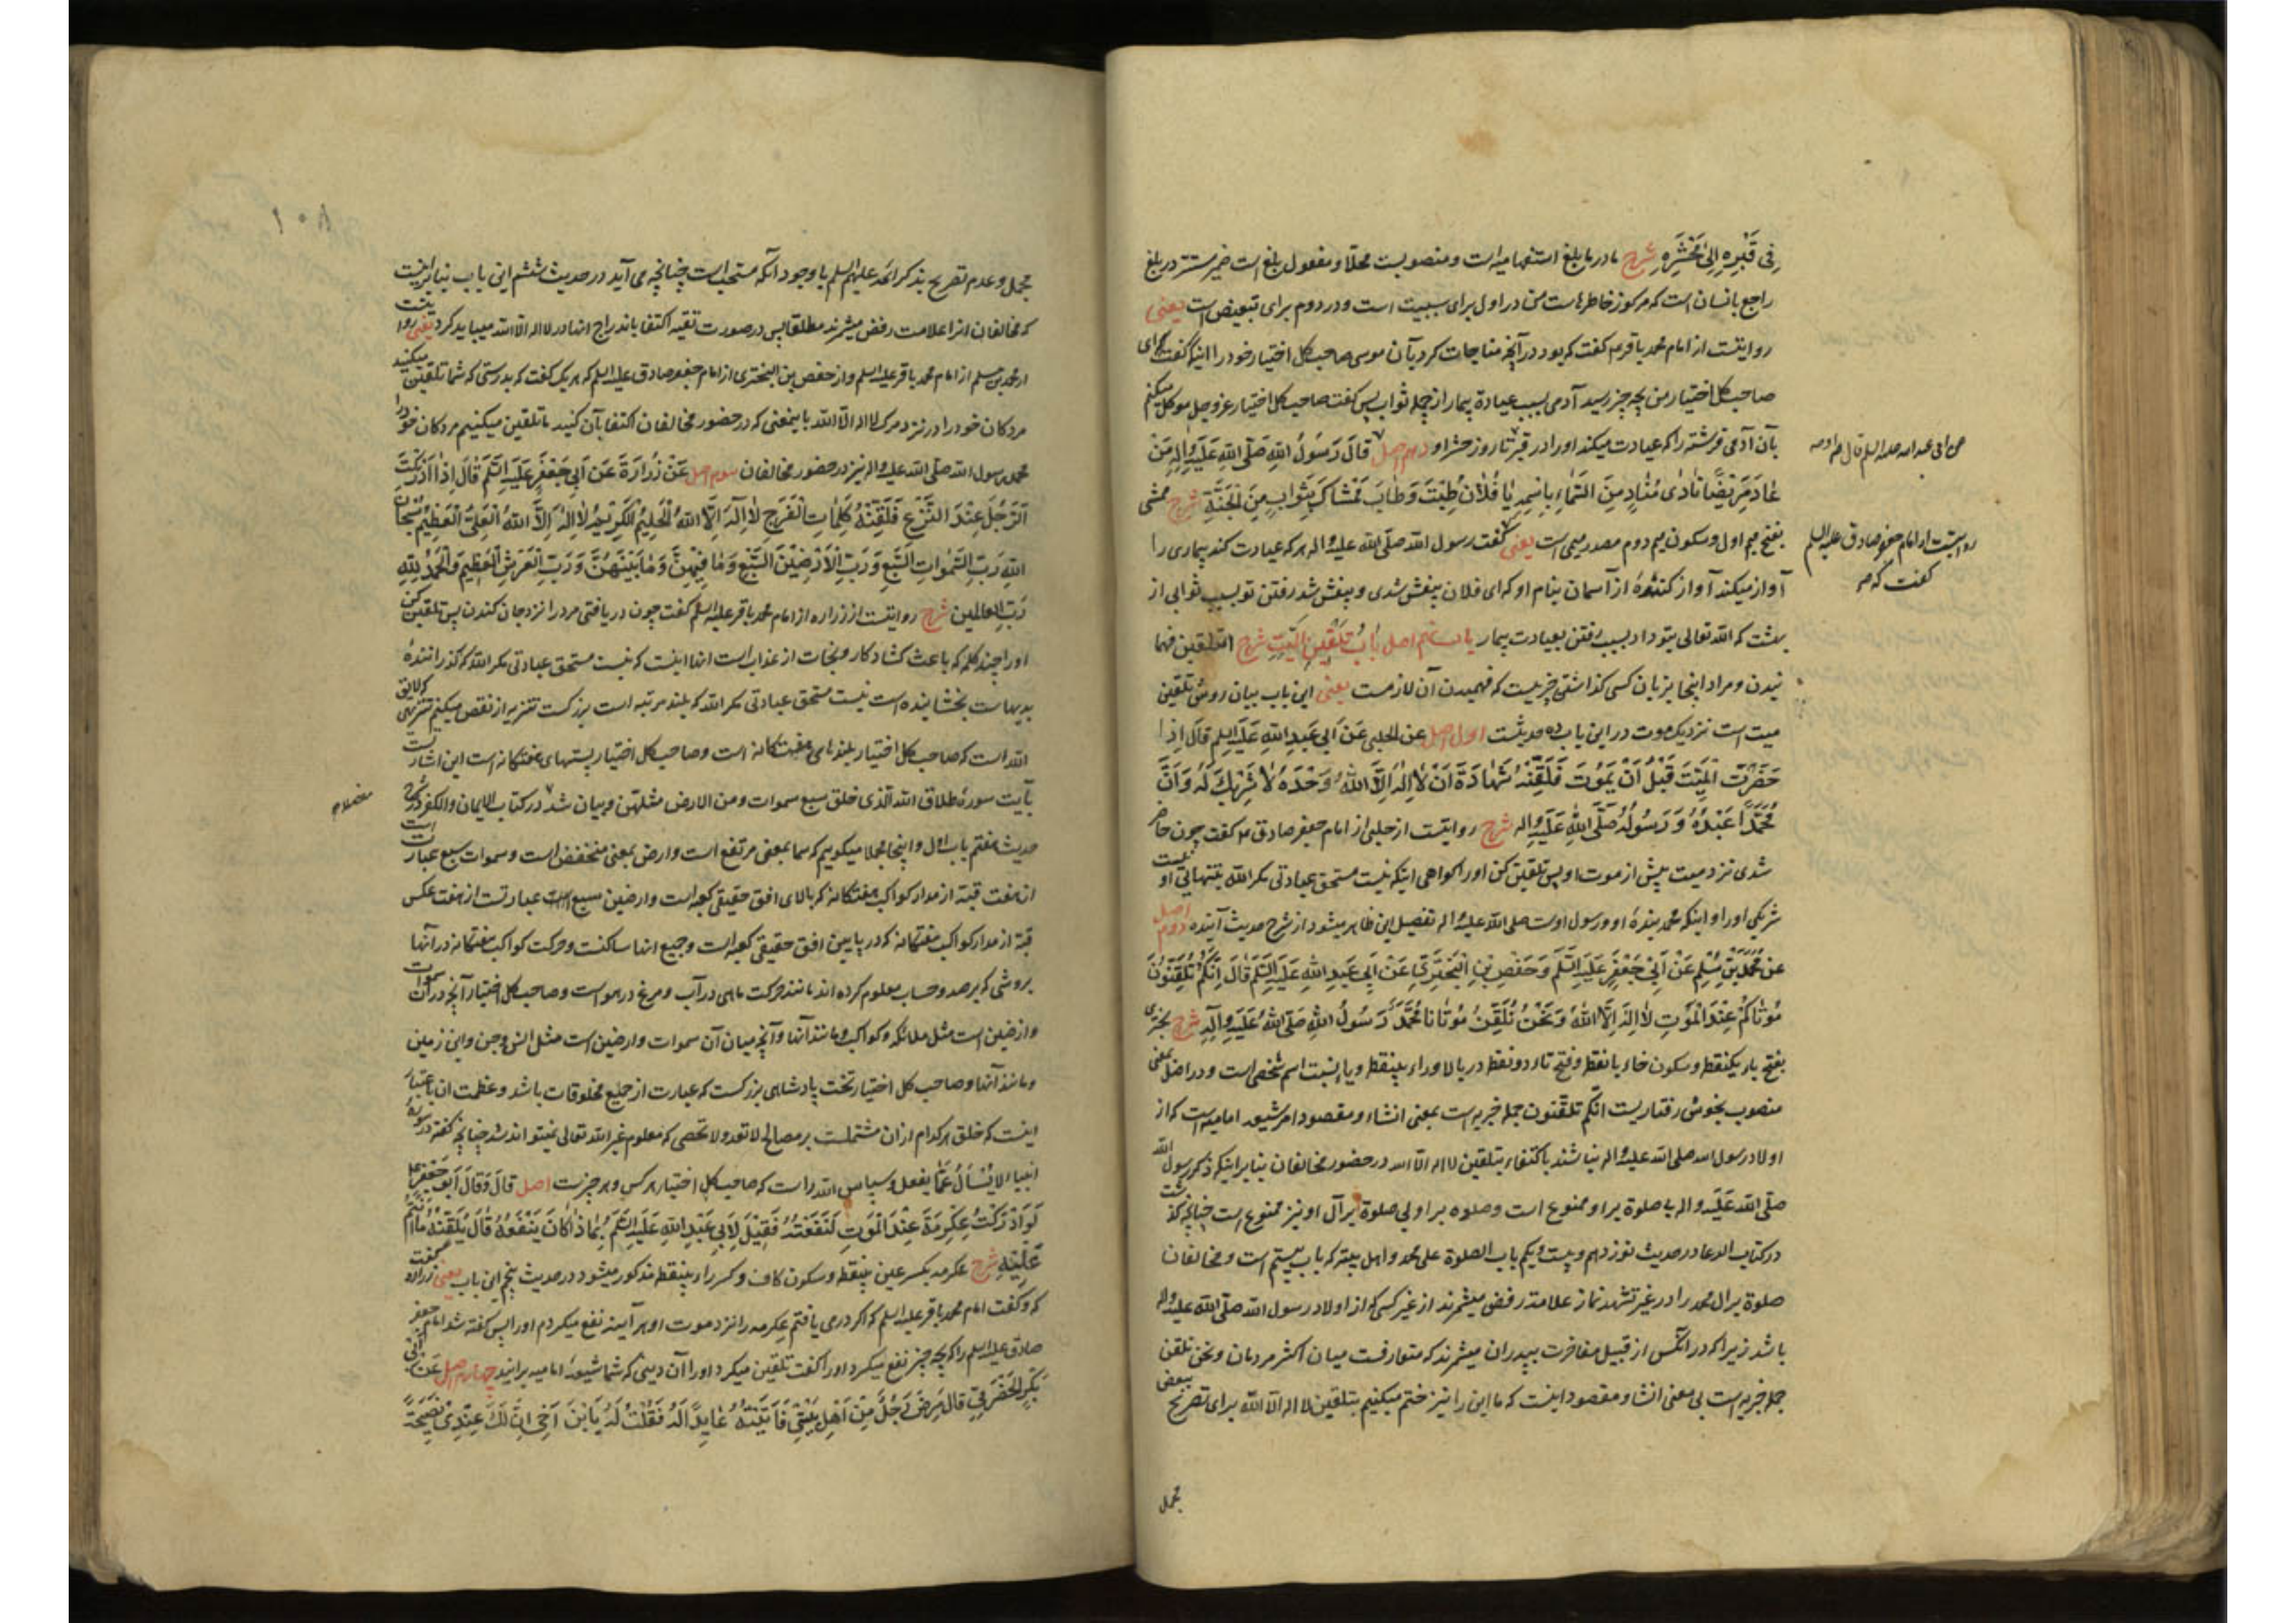 فِی قَبْرِهِ اِلیٰ مَحْشَرِهِ شرح مادر ما بلغ استفهامیه است و منصوبست محلا و مفعول بلغ است ضمیر مستتر در بلغ
راجع بانسان است که مرکوز خاطرهاست من در اول برای سببیت است و در دوم برای تبعیض است یعنی
روایتست از امام محمد باقر ع گفت که بود در آنچه مناجات کرد بآن موسی صاحب کل اختیار خود را اینکه گفت که ای
صاحب کل اختیار من بچه چیز رسید آدمی بسبب عیادة بیمار از جمله ثواب پس گفت صاحب کل اختیار عز و جل موکل میکنم
بآن آدمی فرشته را که عیادت میکند او را در قبر تا روز حشر او دهم اصل قَالَ رَسُولُ اللهِ صَلَّی اللهِ عَلَیْهِ وَاٰلِهِ مَنْ
عن ابی عبد الله علیه السلم قال
عَادَ مَرِیْضًا نَادٰی مُنَادٍ مِنَ السَّمَاءِ بِاسْمِهِ یَا فُلَانُ طِبْتَ وَطَابَ مَمْشَاکَ بِثَوَابٍ مِنَ الْجَنَّةِ شرح ممشی
بفتح میم اول و سکون میم دوم مصدر میمی است یعنی گفت رسول الله صلّی الله علیه و اله هر که عیادت کند بیماری را
روایتست از امام جعفر صادق علیه السلم
کفت که
آواز میکند آواز کنندهٔ از آسمان بنام او که ای فلان بیغش شدی و بیغش شد رفتن تو بسبب ثوابی از
بهشت که الله تعالی بتو داد بسبب رفتن بعیادت بیمار باب اصل بَابُ تَلْقِینِ الْمَیِّتِ شرح التلقین فهما
نیدن و مراد اینجا بزبان کسی گذاشتن چیزیست که فهمیدن آن لازمست یعنی این باب بیان روش تلقین
میت است نزدیک موت در این باب ده حدیثست اول اصل عن الحلبی عَنْ اَبی عَبدِ اللهِ عَلَیْهِ السلم قَالَ اِذَا
حَضَرْتَ الْمَیِّتَ قَبْلَ اَنْ یَمُوْتَ فَلَقِّنْهُ شَهَادَةَ اَنْ لَا اِلٰهَ اِلَّا اللهُ وَحْدَهُ لَا شَرِیْکَ لَهُ وَاَنَّ
مُحَمَّدًا عَبْدُهُ وَرَسُولُهُ صَلَّی اللهِ عَلَیْهِ واله شرح روایتست از حلبی از امام جعفر صادق ع گفت چون حاضر
شدی نزد میت پیش از موت او پس تلقین کن او را گواهی اینکه نیست مستحق عبادتی مگر الله بتنهائی او نیست
شریکی او را و اینکه محمد بندهٔ او و رسول اوست صلی الله علیه و اله تفصیل این ظاهر میشود از شرح حدیث آینده دوم اصل
عَنْ مُحَمَّدِ بْنِ مُسْلِمٍ عَنْ اَبِیْ جَعْفَرٍ عَلَیْهِ السَّلَمُ وَحَفْصِ بْنِ الْبَخْتَرِیِّ عَنْ اَبِی عَبدِ اللهِ عَلَیْهِ السَّلَمُ قَالَ اِنَّکُمْ تُلَقِّنُونَ
مَوْتَاکُمْ عِنْدَ الْمَوْتِ لَا اِلٰهَ اِلَّا اللهُ وَنَحْنُ نُلَقِّنُ مَوْتَانَا مُحَمَّدٌ رَسُولُ اللهِ صَلَّی اللهُ عَلَیْهِ وَاٰلِهِ شرح بختری
بفتح باء یکنقطه و سکون خاء بانقطه و فتح تاء دو نقطه در بالا و راء بینقطه و یاء نسبت اسم شخصی است و در اصل بمعنی
منصوب بخوش رفتاریست انّکم تلقّنون جمله خبریه است بمعنی انشاء و مقصود امر شیعه امامیه است که از
اولاد رسول الله صلی الله علیه و اله نباشند باکتفاء بتلقین لا اله الّا الله در حضور مخالفان بنا بر اینکه ذکر رسول الله
صلّی الله عَلَیْه و اله با صلوة بر او ممنوع است و صلوة بر او بی صلوة بر آل او نیز ممنوع است چنانچه گذشت
در کتاب الدعا در حدیث نوزدهم و بیست و یکم باب الصلوة علی محمد و اهل بیته که باب بیستم است و مخالفان
صلوة بر ال محمد را در غیر تشهد نماز علامت رفض میشمرند از غیر کسی که از اولاد رسول الله صلّی الله علیه و اله
باشد زیرا که در آنکس از قبیل مفاخرت بپدران میشمرند که متعارفست میان اکثر مردمان و نحن نلقن
جمله خبریه است بی معنی انشا و مقصود اینست که ما این را نیز ختم میکنیم بتلقین لا اله الّا الله برای تصریح ببعض
مجمل
۱۰۸
مجمل و عدم تصریح بذکر ائمه علیهم السلم با وجود آنکه مستحب است چنانچه می آید در حدیث ششم این باب بنا بر اینست
که مخالفان انرا علامت رفض میشمرند مطلقا پس در صورت تقیه اکتفا باندراج انها در لا اله الّا الله میباید کرد یعنی روایتست
از محمد بن مسلم از امام محمد باقر علیه السلم و از حفص بن البختری از امام جعفر صادق علیه السلم که هر یک گفت که بدرستی که شما تلقین میکنید
مردکان خود را در نزد مرک لا اله الّا الله باینمعنی که در حضور مخالفان اکتفا بآن کنید ما تلقین میکنیم مردکان خود را
محمد رسول الله صلّی الله علیه و اله نیز در حضور مخالفان سوم اصل عَنْ زُرَارَةَ عَن اَبِی جَعْفَرٍ عَلَیْهِ السَّلَمُ قَالَ اِذَا اَدْرَکْتَ
الرَّجُلَ عِنْدَ النَّزْعِ فَلَقِّنْهُ کَلِمَاتِ الْفَرَجِ لَا اِلٰهَ اِلَّا اللهُ الْحَلِیْمُ الْکَرِیْمُ لَا اِلٰهَ اِلَّا اللهُ الْعَلِیُّ الْعَظِیْمُ سُبْحَانَ
اللهِ رَبِّ السَّمٰوَاتِ السَّبْعِ وَرَبِّ الْاَرَضِیْنَ السَّبْعِ وَمَا فِیْهِنَّ وَمَا بَیْنَهُنَّ وَرَبِّ الْعَرْشِ الْعَظِیْمِ وَالْحَمْدُ لِلّٰهِ
رَبِّ الْعَالَمین شرح روایتست از زراره از امام محمد باقر علیه السلم گفت چون دریافتی مرد را نزد جان کندن پس تلقین کن
او را چند کلمه که باعث کشاد کار و نجات از عذاب است انها اینست که نیست مستحق عبادتی مگر الله که گذرانندهٔ
بدیهاست بخشاینده است نیست مستحق عبادتی مگر الله که بلند مرتبه است بزرگست تنزیه از نقص میکنم تنزیهی که لایق
الله است که صاحب کل اختیار بلندهای هفتکانه است و صاحب کل اختیار پستهای هفتکانه است این اشارتست
بآیت سورهٔ طلاق الله الذی خلق سبع سموات و من الارض مثلهن و بیان شد در کتاب الایمان و الکفر در شرح
حدیث هفتم باب اول و اینجا مجملا میکوییم که سما بمعنی مرتفع است و ارض بمعنی منخفض است و سموات سبع عبارتست
از هفت قبه از مدار کواکب هفتکانه که بالای افق حقیقی کعبه است و ارضین سبع عبارتست از هفت عکس
قبه از مدار کواکب هفتکانه که در پایین افق حقیقی کعبه است و جمیع انها ساکنست و حرکت کواکب هفتکانه در آنها
بروشی که برصد و حساب معلوم کرده اند مانند حرکت ماهی در آب و مرغ در هواست و صاحب کل اختیار آنچه در آن سموات
و ارضین است مثل ملائکه و کواکب و مانند آنها و آنچه میان آن سموات و ارضین است مثل انس و جن و این زمین
و مانند آنها و صاحب کل اختیار تخت پادشاهی بزرگست که عبارت از جمیع مخلوقات باشد و عظمت ان باعتبار
اینست که خلق هر کدام از ان مشتملست بر مصالح لا تعد و لا تحصی که معلوم غیر الله تعالی نمیتواند شد چنانچه گفته در سورهٔ
انبیاء لا یُسْأَلُ عَمَّا یفعل و سپاس الله راست که صاحب کل اختیار هر کس و هر چیز است اصل قالَ وَقَالَ اَبُو جَعْفَرٍ ع
لَوْ اَدْرَکْتُ عِکْرِمَةَ عِنْدَ الْمَوْتِ لَنَفَعْتُهُ فَقِیْلَ لِاَبِی عَبْدِ اللهِ عَلَیْهِ السَّلَمُ بِمَاذَا کَانَ یَنْفَعُهُ قَالَ یُلَقِّنُهُ مَا اَنْتُمْ
عَلَیْهِ شرح عکرمه بکسر عین بینقطه و سکون کاف و کسر راء بینقطه مذکور میشود در حدیث پنجم این باب یعنی زراره گفت
که و گفت امام محمد باقر علیه السلم که اگر درمی یافتم عکرمه را نزد موت او هر آینه نفع میکردم او را پس گفته شد امام جعفر
صادق علیه السلم را که بچه چیز نفع میکرد او را گفت تلقین میکرد او را آن دینی که شما شیعهٔ امامیه برانید چهارم اصل عَنْ اَبی
بَکْرٍ الْحَضْرَمِیِّ قَالَ مَرِضَ رَجُلٌ مِنْ اَهْلِ بَیْتِیْ فَاَتَیْتُهُ عَایِدًا لَهُ فَقُلْتُ لَهُ یَا بْنَ اَخِی اِنَّ لَکَ عِنْدِیْ نَصِیْحَةً